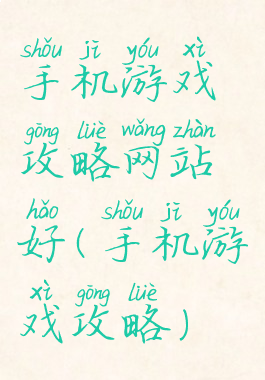 shǒu jī yóu xì
手机游戏
gōng lüè wǎng zhàn
攻略网站
hǎo shǒu jī yóu
好(手机游
xì gōng lüè
戏攻略)